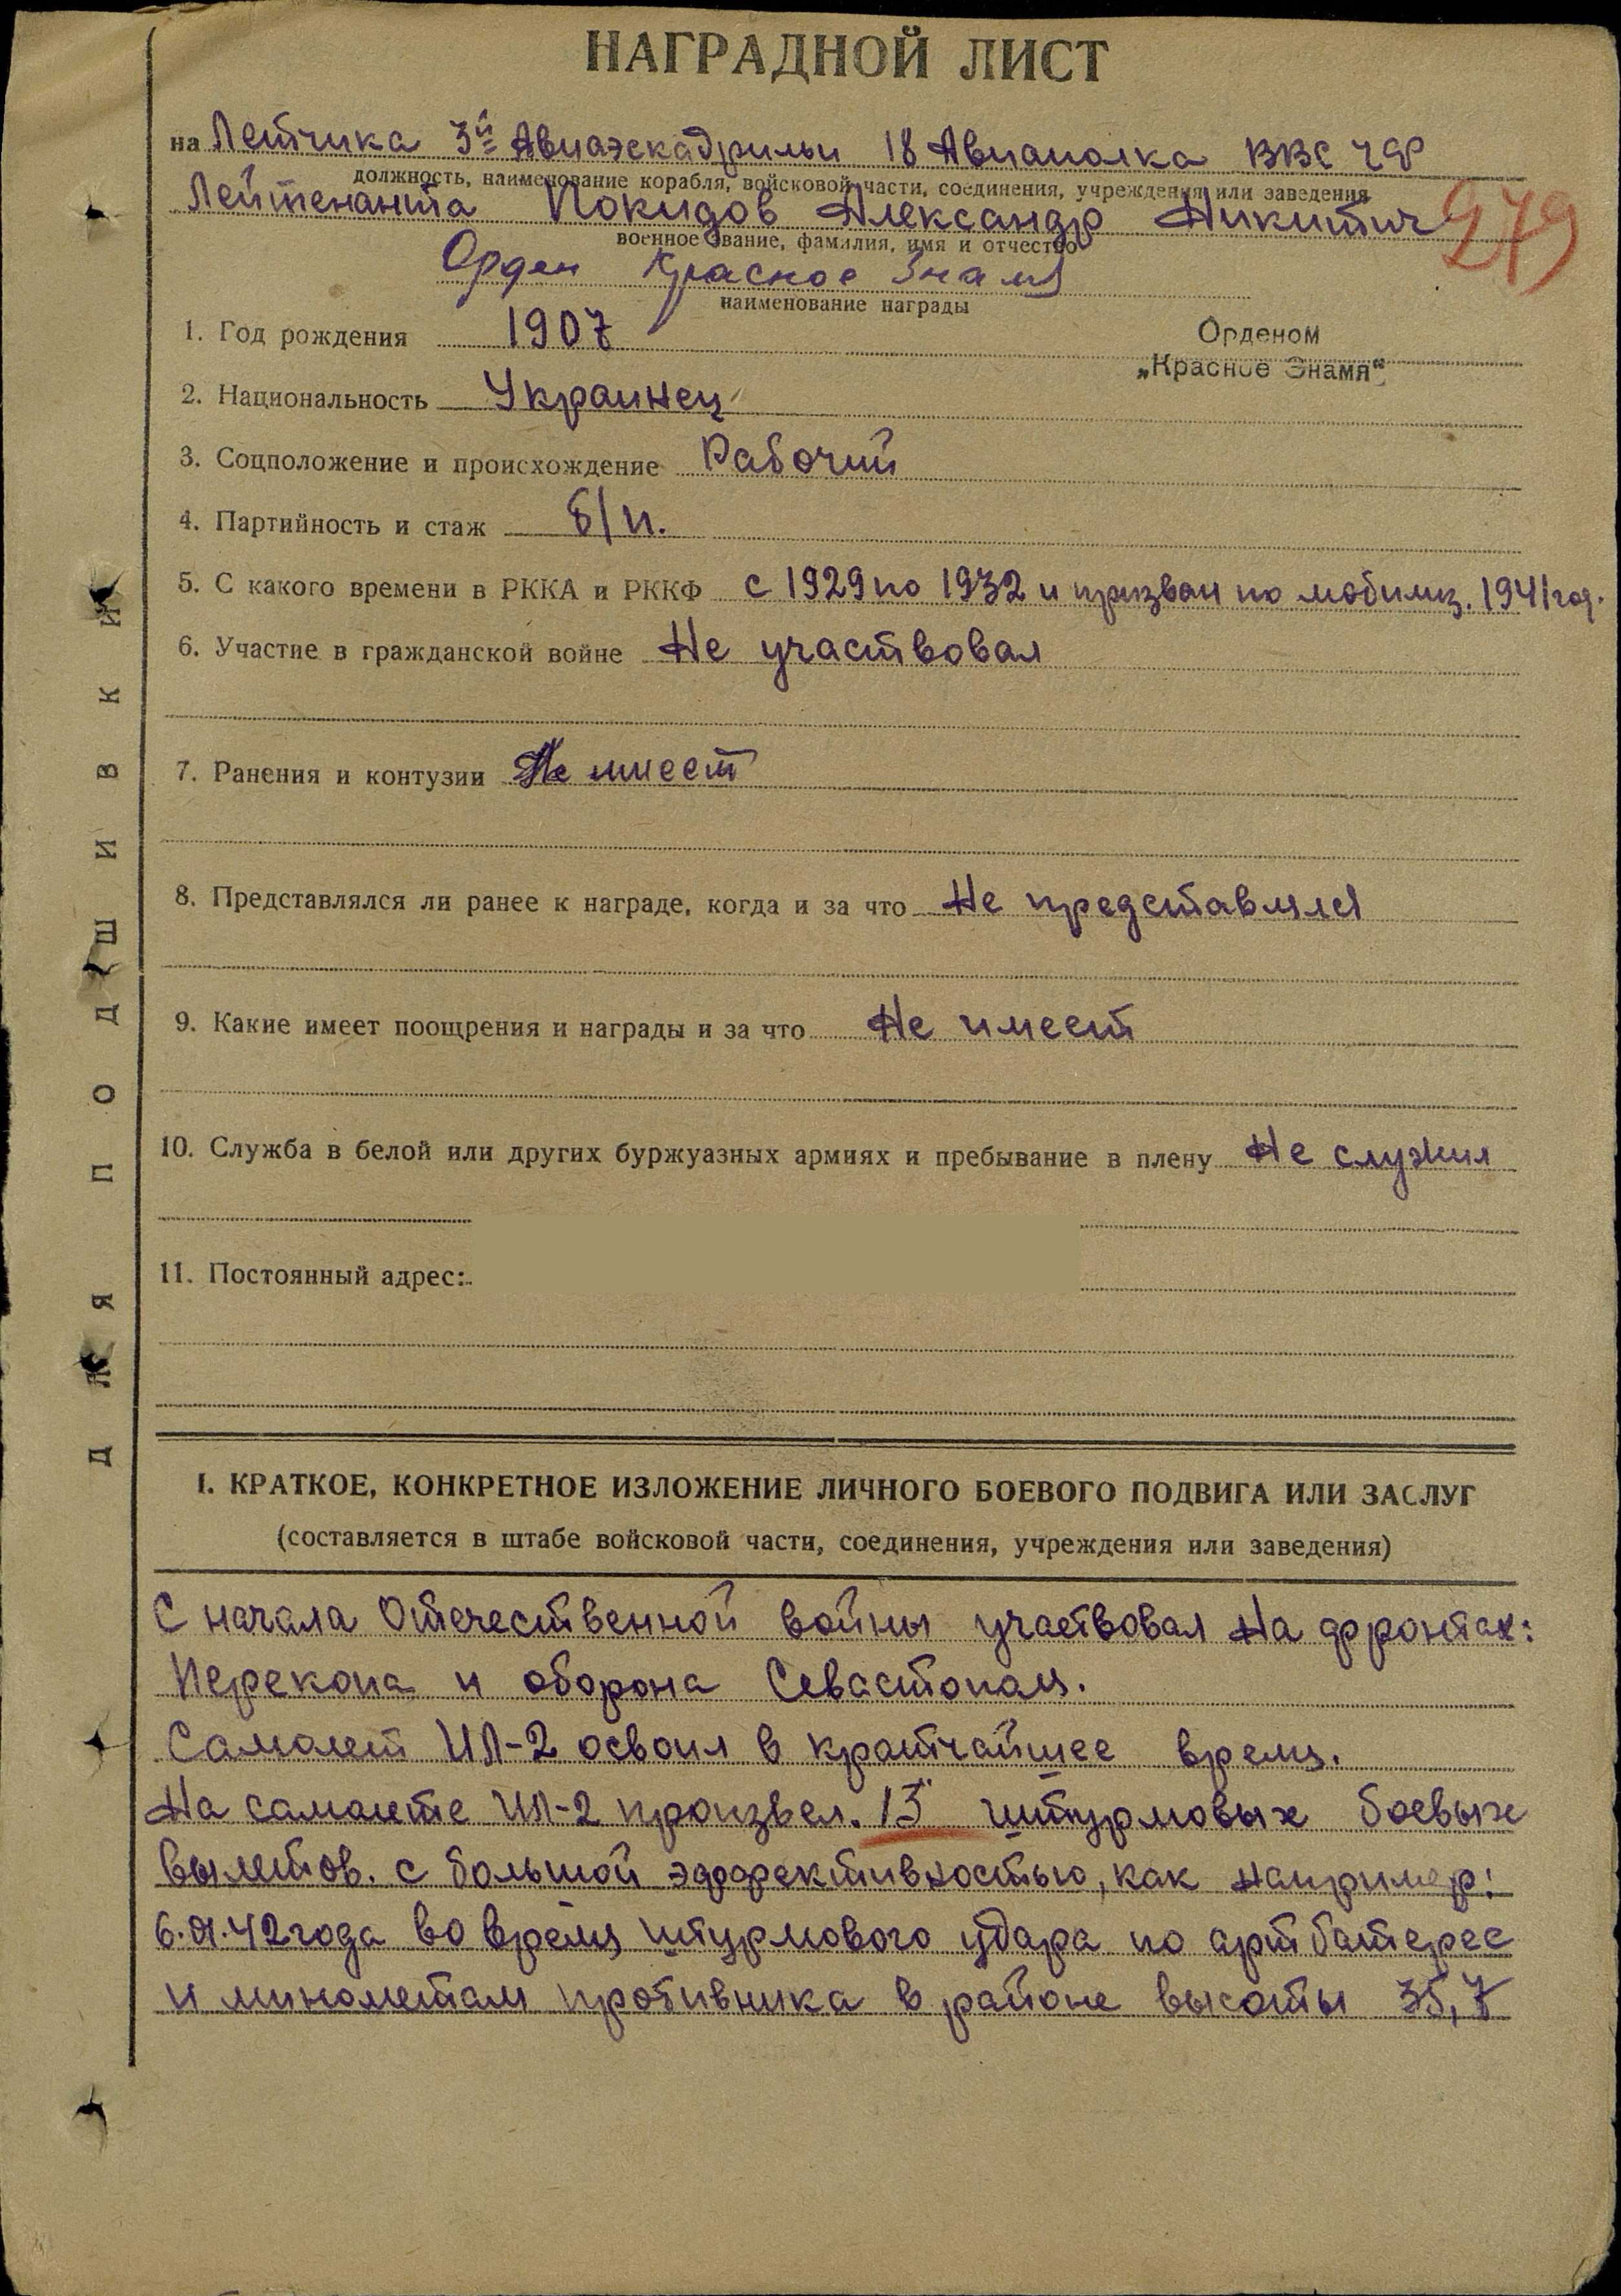 НАГРАДНОЙ ЛИСТ
на Летчика 3й Авиаэскадрильи 18 Авиаполка ВВС ЧФ
должность, наименование корабля, войсковой части, соединения, учреждения или заведения
Лейтенанта Покидов Александр Никитич
279
военное звание, фамилия, имя и отчество
Орден Красное Знамя
наименование награды
1. Год рождения 1907
Орденом
„Красное Знамя“
2. Национальность Украинец
3. Соцположение и происхождение Рабочий
4. Партийность и стаж б/п.
5. С какого времени в РККА и РККФ с 1929 по 1932 и призван по мобилиз. 1941 год.
6. Участие в гражданской войне Не участвовал
7. Ранения и контузии Не имеет
8. Представлялся ли ранее к награде, когда и за что Не представлялся
9. Какие имеет поощрения и награды и за что Не имеет
10. Служба в белой или других буржуазных армиях и пребывание в плену Не служил
11. Постоянный адрес:
ДЛЯ ПОДШИВКИ
I. КРАТКОЕ, КОНКРЕТНОЕ ИЗЛОЖЕНИЕ ЛИЧНОГО БОЕВОГО ПОДВИГА ИЛИ ЗАСЛУГ
(составляется в штабе войсковой части, соединения, учреждения или заведения)
С начала Отечественной войны участвовал на фронтах:
Перекопа и оборона Севастополя.
Самолет ИЛ-2 освоил в кратчайшее время.
На самолете ИЛ-2 произвел. 15 штурмовых боевых
вылетов. с большой эффективностью, как например:
42 года во время штурмового удара по артбатерее
и минометам противника в районе высоты 35,7